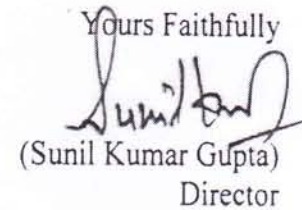 Yours Faithfully
(Sunil Kumar Gupta)
Director